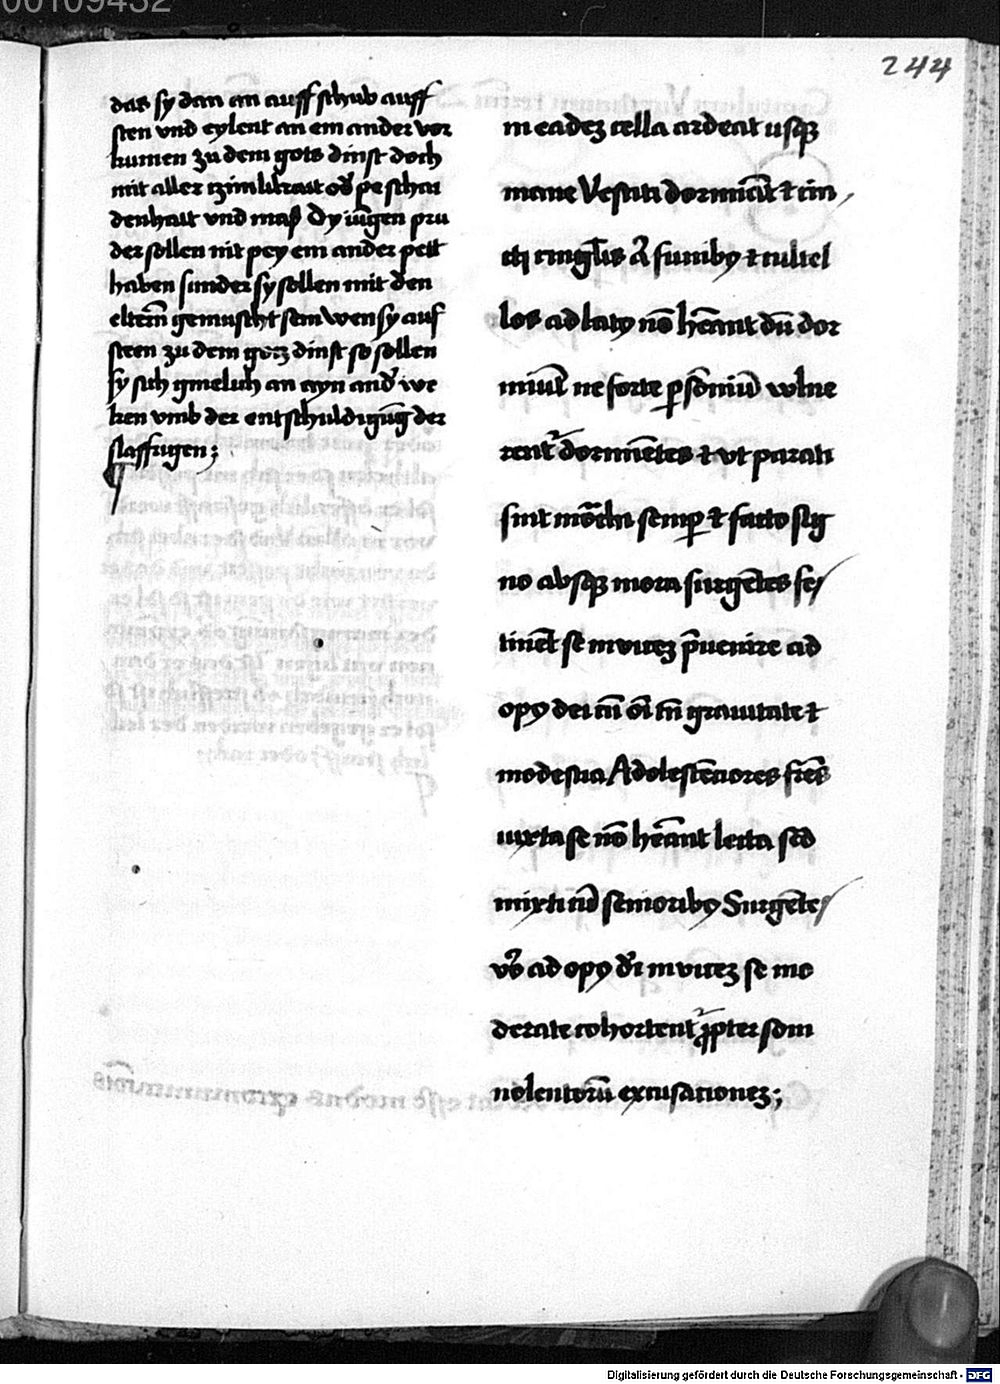 00109432
244
das sy dan an auff schub auff
sten vnd eylent an em ander vor
kumen zu dem gots dinst doch
mit aller tzimlikait od̾ pe schai
denhait vnd maß Dy iu̅gen pru
der sollen nit pey em ander pett
haben sunder sy sollen mit den
elterm̅ gemuscht sein wen sy auf
steen zu dem gotz dinst so sollen
sy sich gmelich an ayn and̾ we
ken vmb der entschuldigu̅g der
slaffrigen ;
in eadeʒ cella ardeat usqꝫ
mane Vestiti dormia̅t ⁊ cin
cti cingl̅is a̅ funibꝯ ⁊ cultel
los ad latꝯ no̅ he̅ant du̅ dor
miu̅t ne forte ꝑ so̅niu̅ wlne
rent᷑ dormie̅tes ⁊ vt parati
sint mo̅chi semꝑ ⁊ facto sig
no absqꝫ mora surge̅tes fe
tine̅t se inuiceʒ p̅uenire ad
opꝯ dei cu̅ o̅i tn̅ grauitate ⁊
modestia Adolesce̅tiores fr̅es
iuxta se no̅ he̅ant lecta sed
mixti cu̅ senioribꝯ Surge̅tes
vo̾ ad opꝯ di̅ inuiceʒ se mo
derate cohortent᷑ ꝓpter som
nolentoru̅ excusationeʒ ;
Digitalisierung gefördert durch die Deutsche Forschungsgemeinschaft - DFG